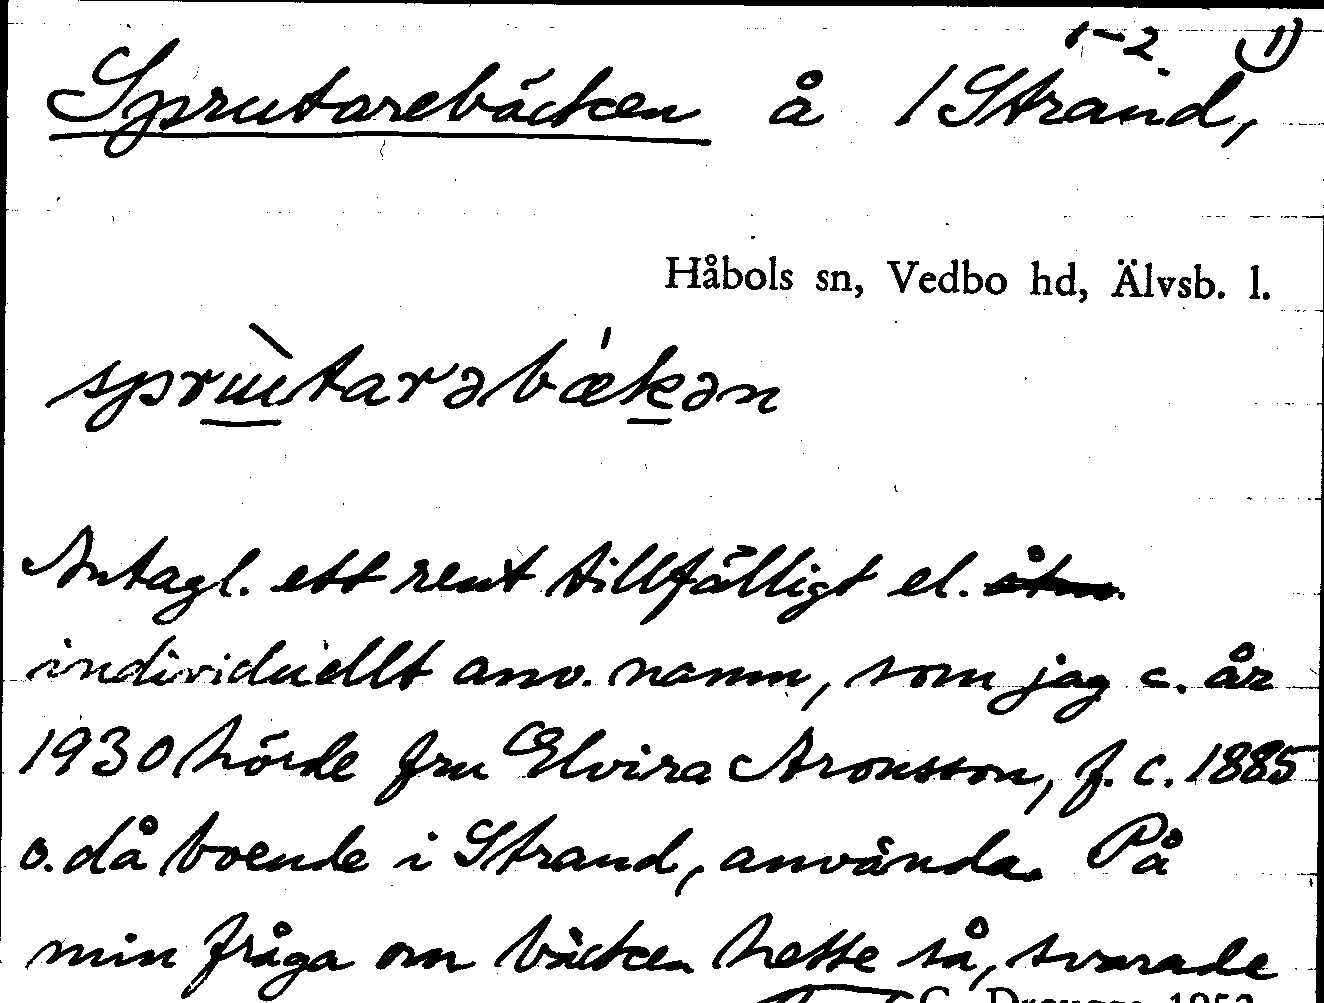 1-2. 1)
Sprutarebäcken å / Strand,
Håbols sn, Vedbo hd, Älvsb. l.
Antagl. ett rent tillfälligt el.
individuellt anv. namn, som jag c. år
1930 hörde fru Elvira Aronsson, f. c. 1885
o. då boende i Strand, använda. På
min fråga om bäcken hette så, svarade